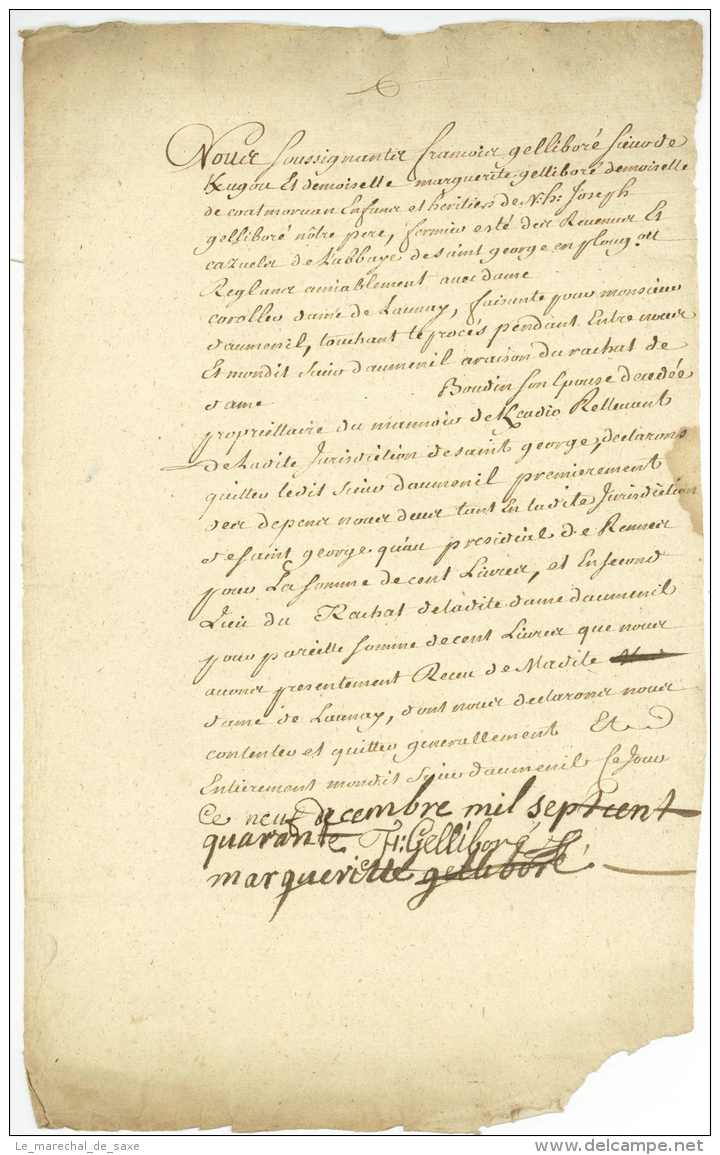 Nous soussignants francois gelliboré sieur de
Kugou Et demoiselle marguerite gelliboré demoiselle
de coatmorvan Enfans et héritiers de N: h: Joseph
gelliboré nôtre pere, fermier esté des Revenus Et
cazuels de L'abbaye de saint george en ploug ott
Reglans amiablement avec dame
coroller dame de Launay, faisante pour monsieur
daumenil, touchant le procés pendant Entre nous
Et mondit sieur daumenil araison du rachat de
dame Boudin son Epouse decedée
propriettaire du mannoir de Kcadio Rellevant
de Ladite Jurisdiction de saint george, declarons
quitter ledit sieur daumenil premierement
des depens nous deux tant En ladite Jurisdiction
de saint george qu'au presidial de Rennes
pour La somme de cent Livres, et En second
Lieu du Rachat de ladite dame daumenil
pour pareille somme de cent Livres que nous
avons presentement Receu de Madite
dame de Launay, dont nous declarons nous
contenter et quitter generallement Et
Entierement mondit sieur daumenil Ce Jour
Ce neuf decembre mil sept cent
quarante Fr: Gelliboré
margueritte gelliboré
Le_marechal_de_saxe
delcampe.net